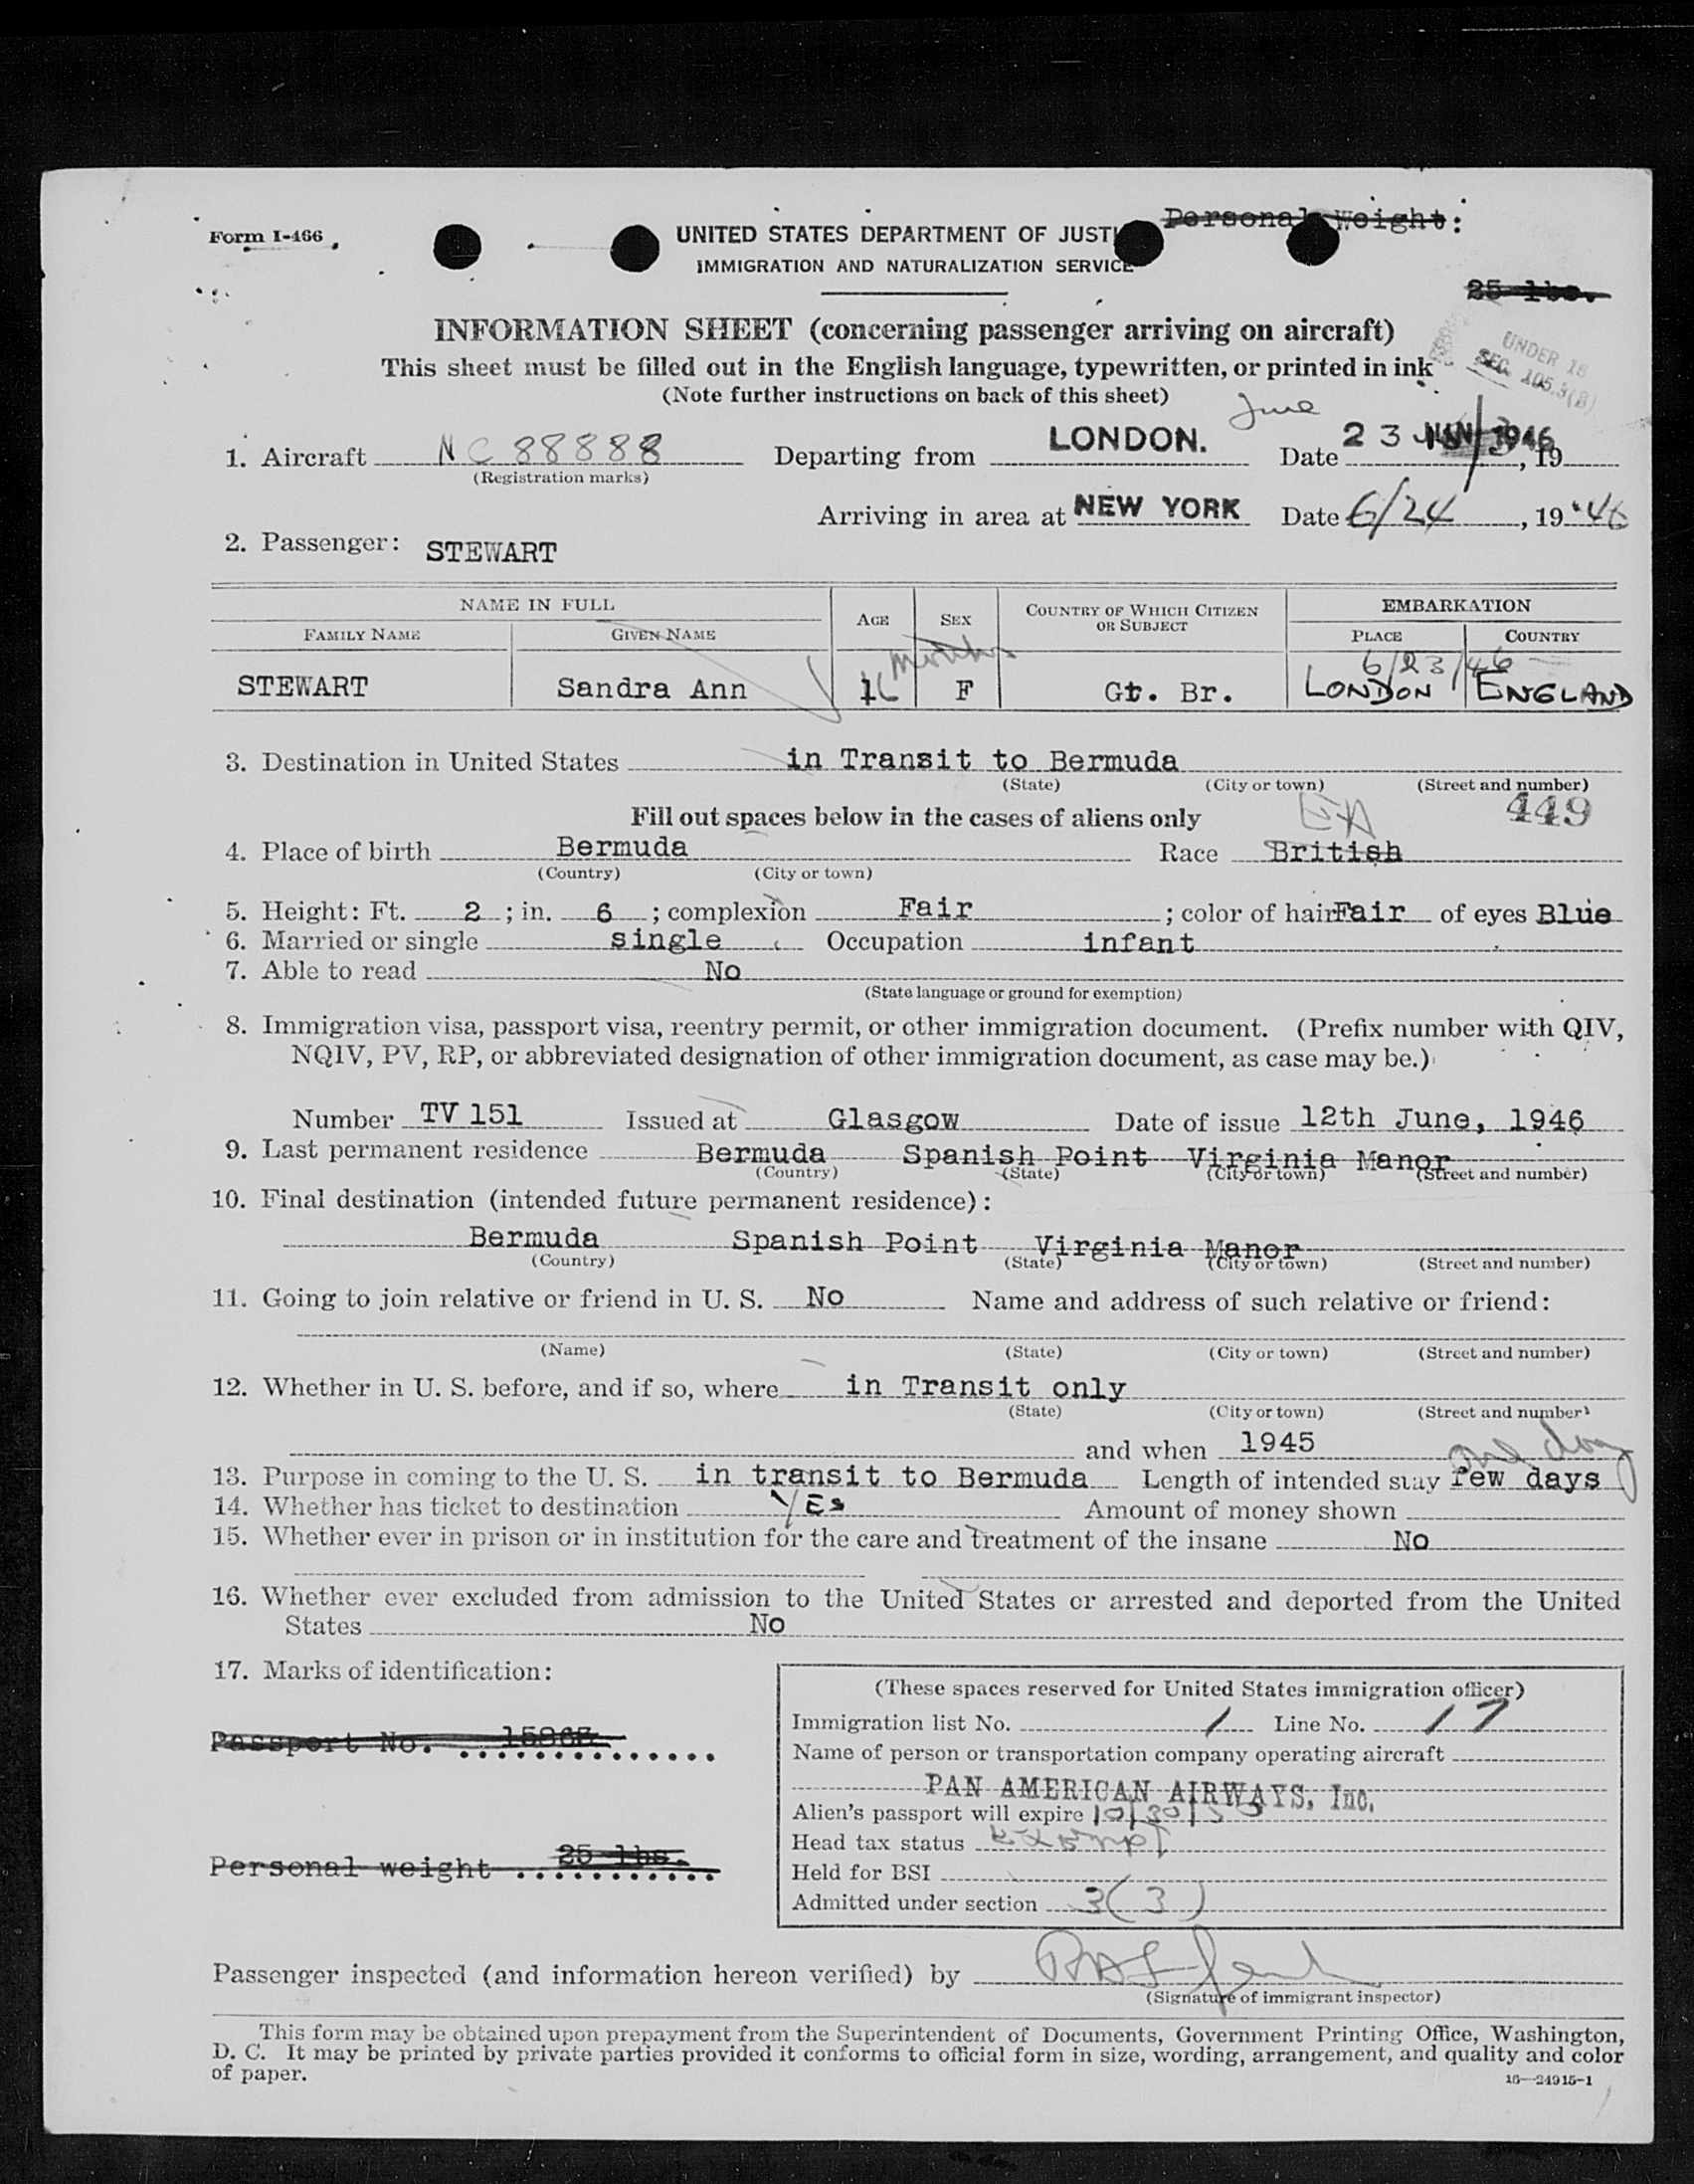 Personal Weight:
Form I-466
UNITED STATES DEPARTMENT OF JUSTI
IMMIGRATION AND NATURALIZATION SERVICE
25 lbs.
INFORMATION SHEET (concerning passenger arriving on aircraft)
UNDER 16
SEC. 105.3(B)
This sheet must be filled out in the English language, typewritten, or printed in ink
(Note further instructions on back of this sheet)
June
1. Aircraft NC 88888 Departing from LONDON. Date 23 JUN 1946, 19
(Registration marks)
Arriving in area at NEW YORK Date 6/24, 19 46
2. Passenger: STEWART
NAME IN FULL AGE SEX COUNTRY OF WHICH CITIZEN OR SUBJECT EMBARKATION
FAMILY NAME GIVEN NAME PLACE COUNTRY
months 6/23/46
STEWART Sandra Ann 16 F Gt. Br. LONDON ENGLAND
3. Destination in United States in Transit to Bermuda
(State) (City or town) (Street and number)
449
Fill out spaces below in the cases of aliens only
4. Place of birth Bermuda Race British
(Country) (City or town)
5. Height: Ft. 2 ; in. 6 ; complexion Fair ; color of hair Fair of eyes Blue
6. Married or single single Occupation infant
7. Able to read No
(State language or ground for exemption)
8. Immigration visa, passport visa, reentry permit, or other immigration document. (Prefix number with QIV,
NQIV, PV, RP, or abbreviated designation of other immigration document, as case may be.)
Number TV 151 Issued at Glasgow Date of issue 12th June, 1946
9. Last permanent residence Bermuda Spanish Point Virginia Manor
(Country) (State) (City or town) (Street and number)
10. Final destination (intended future permanent residence):
Bermuda Spanish Point Virginia Manor
(Country) (State) (City or town) (Street and number)
11. Going to join relative or friend in U. S. No Name and address of such relative or friend:
(Name) (State) (City or town) (Street and number)
12. Whether in U. S. before, and if so, where in Transit only
(State) (City or town) (Street and number)
and when 1945
one day
13. Purpose in coming to the U. S. in transit to Bermuda Length of intended stay few days
14. Whether has ticket to destination YES Amount of money shown
15. Whether ever in prison or in institution for the care and treatment of the insane No
16. Whether ever excluded from admission to the United States or arrested and deported from the United
States No
17. Marks of identification:
Passport No.
Personal weight 25 lbs.
(These spaces reserved for United States immigration officer)
Immigration list No. 1 Line No. 17
Name of person or transportation company operating aircraft
PAN AMERICAN AIRWAYS, Inc.
Alien's passport will expire 10/30/50
Head tax status Exempt
Held for BSI
Admitted under section 3(3)
Passenger inspected (and information hereon verified) by
(Signature of immigrant inspector)
This form may be obtained upon prepayment from the Superintendent of Documents, Government Printing Office, Washington,
D. C. It may be printed by private parties provided it conforms to official form in size, wording, arrangement, and quality and color
of paper.
16—24915-1